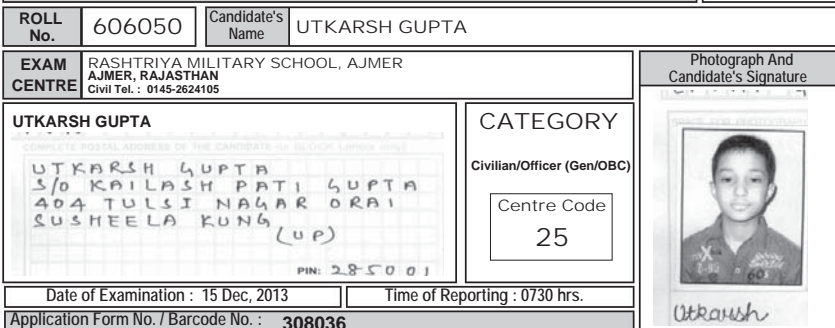 ROLL No. 606050 Candidate's Name UTKARSH GUPTA
EXAM CENTRE
RASHTRIYA MILITARY SCHOOL, AJMER
AJMER, RAJASTHAN
Civil Tel. : 0145-2624105
Photograph And
Candidate's Signature
UTKARSH GUPTA
COMPLETE POSTAL ADDRESS OF THE CANDIDATE
UTKARSH GUPTA
S/O KAILASH PATI GUPTA
404 TULSI NAGAR ORAI
SUSHEELA KUNG
(UP)
PIN: 285001
CATEGORY
Civilian/Officer (Gen/OBC)
Centre Code
25
Utkarsh
Date of Examination : 15 Dec, 2013
Time of Reporting : 0730 hrs.
Application Form No. / Barcode No. : 308036